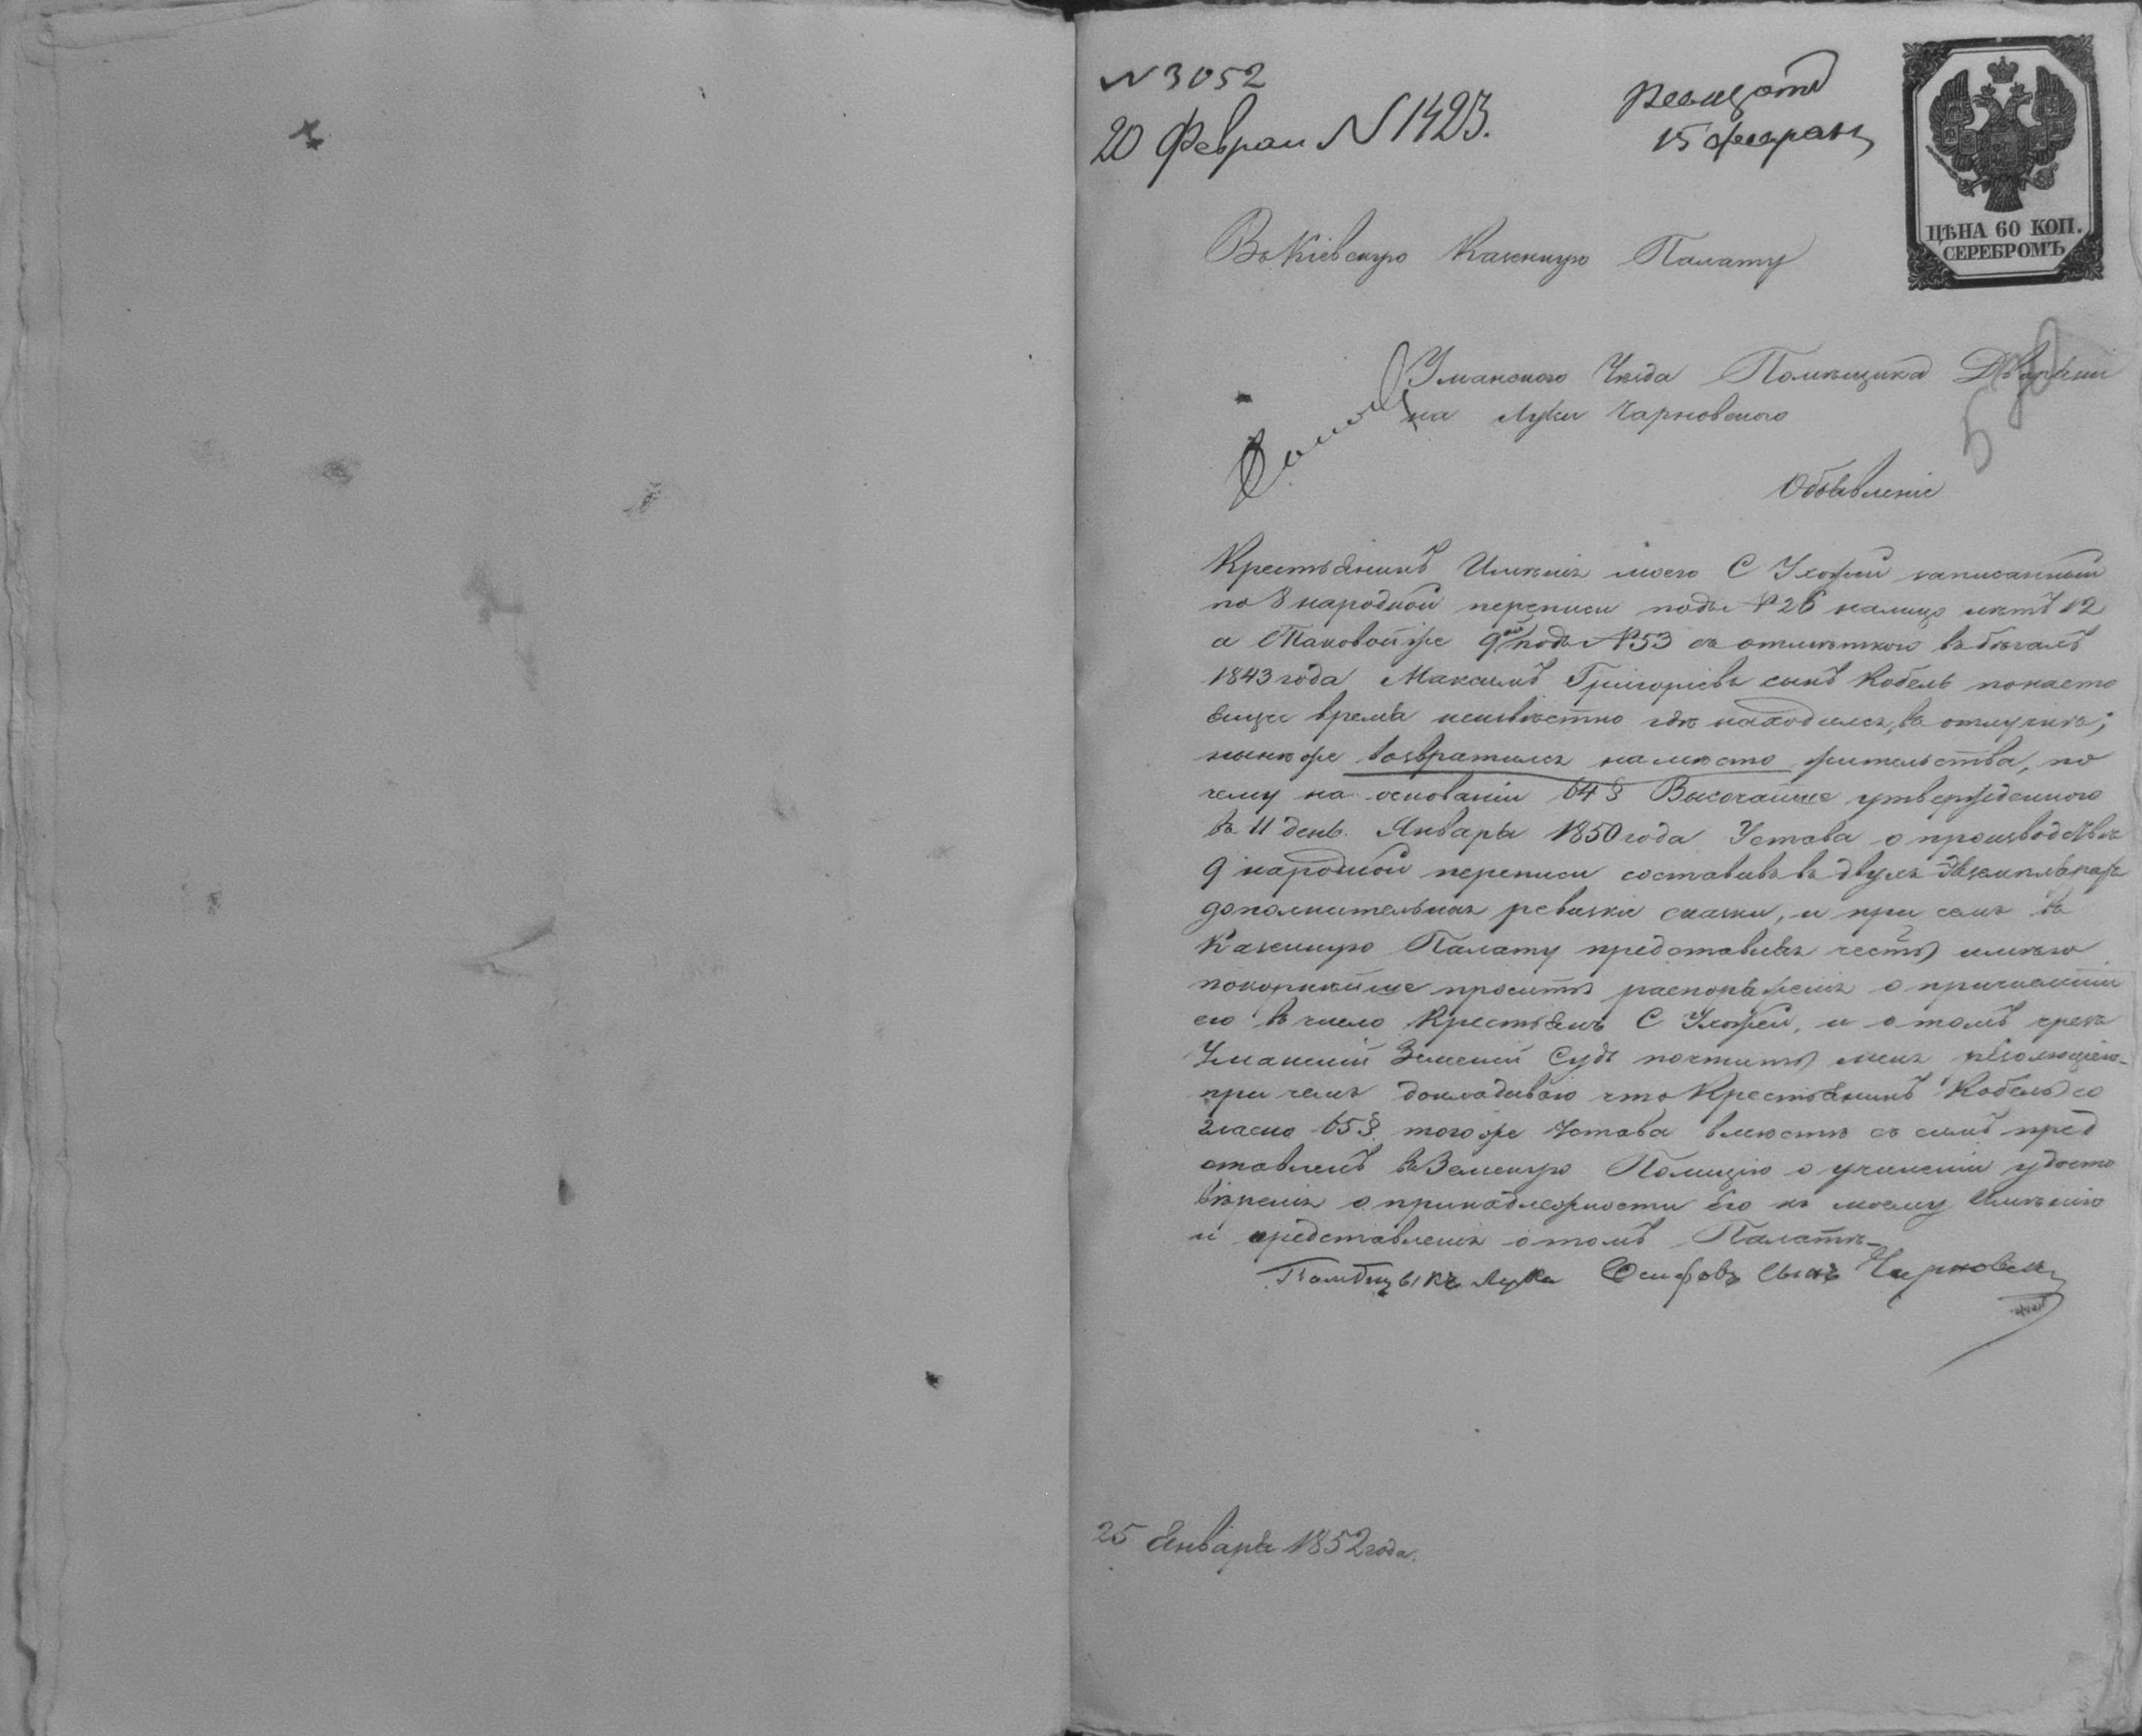 N 3052
20 Феврал N 1423.
15 феврал
ЦѢНА 60 КОП.
СЕРЕБРОМЪ
Въ Кіевскую Казенную Палату
Уманского Уезда Помѣщика Дворяни
на Луки Чарновского
Объявленіе
Крестьянинъ Имѣнія моего С записанный
по 8 народной переписи подъ № 26 налицо летъ 12
а Таковой же 9ой подъ № 53 съ отмѣткою въ бѣгахъ
1843 года Максимъ Григоріевъ сынъ Кобель по насто
ящее время неизвѣстно где находился, въ отлучкѣ;
нынѣ же возвратился на мѣсто жительства, по
чему на основаніи 64 § Высочайше утвержденного
въ 11 день Января 1850 года Устава о производствѣ
9 народной переписи составивъ въ двухъ Экземплярахъ
дополнительныя ревизкіе сказки, и при семъ въ
Казенную Палату представляя честь имѣю
покорнѣйше просить распоряженія о причисленіи
его въ число Крестьянъ С и о томъ чрезъ
Уманскій Земскій Судъ почтить меня резолюціею
при чемъ докладываю что Крестьянинъ Кобель со
гласно 65 § того же Устава вместѣ съ симъ пред
ставленъ въ Земскую Полицію о учиненіи удосто
вѣренія о принадлежности Его къ моему Имѣнію
и представленія о томъ Палатѣ
Помѣщыкъ Лука Осифовъ сынъ Чарновски
25 Января 1852 года.